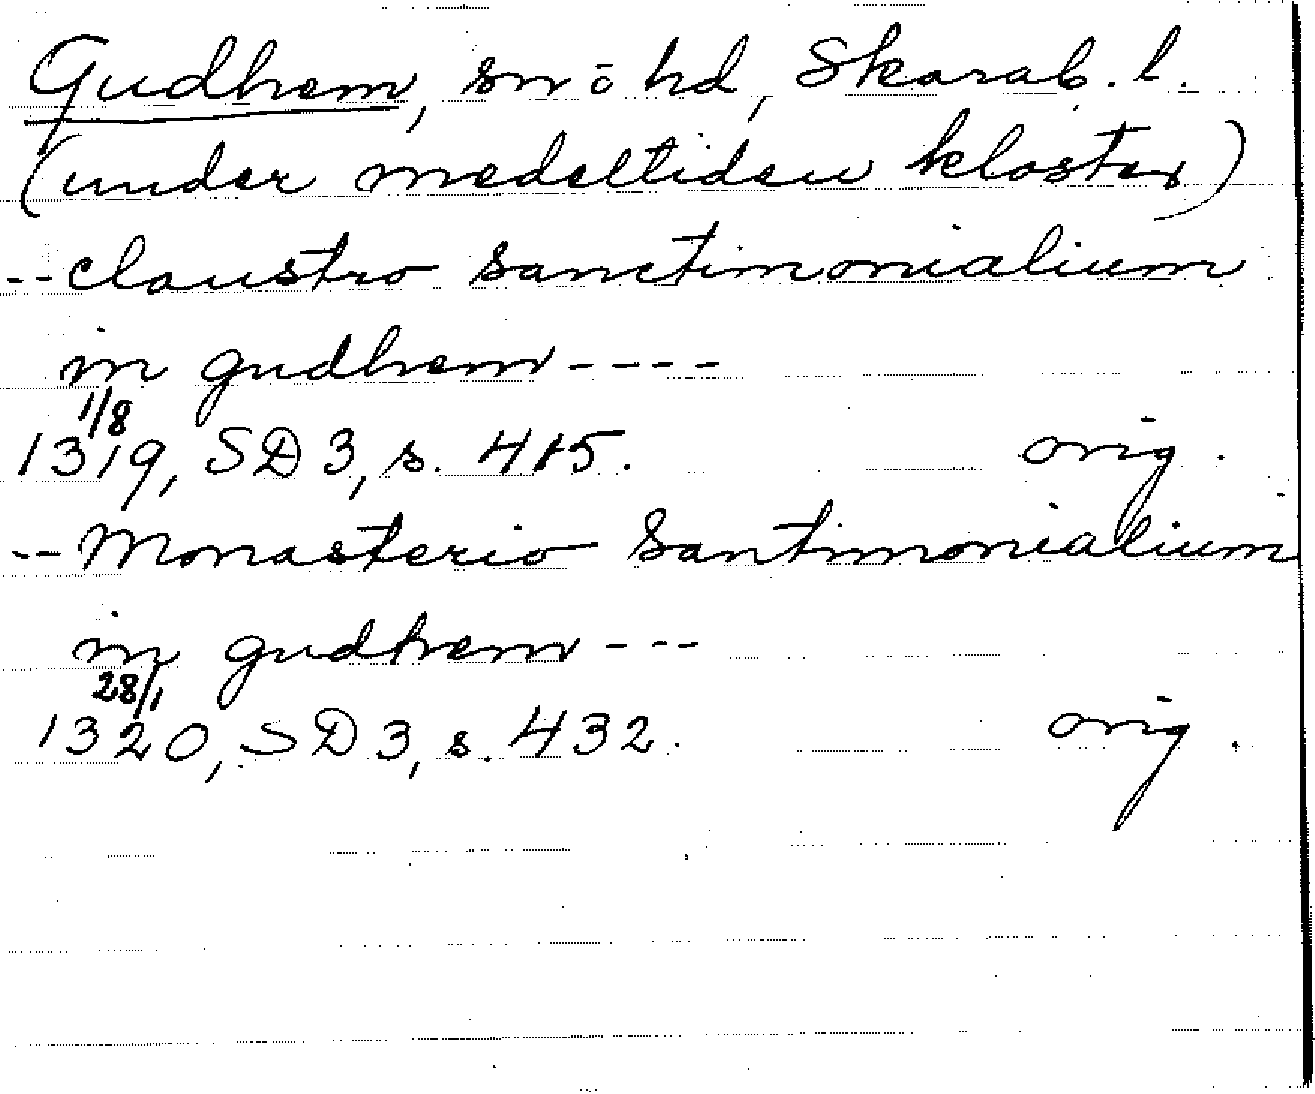 Gudhem, sn o hd, Skarab. l.
(under medeltiden kloster)
--claustro sanctimonialium
in gudhem----
1/8
1319, SD 3, s. 415. orig.
--Monasterio Santimonialium
in gudhem---
28/1
1320, SD 3, s. 432. orig.